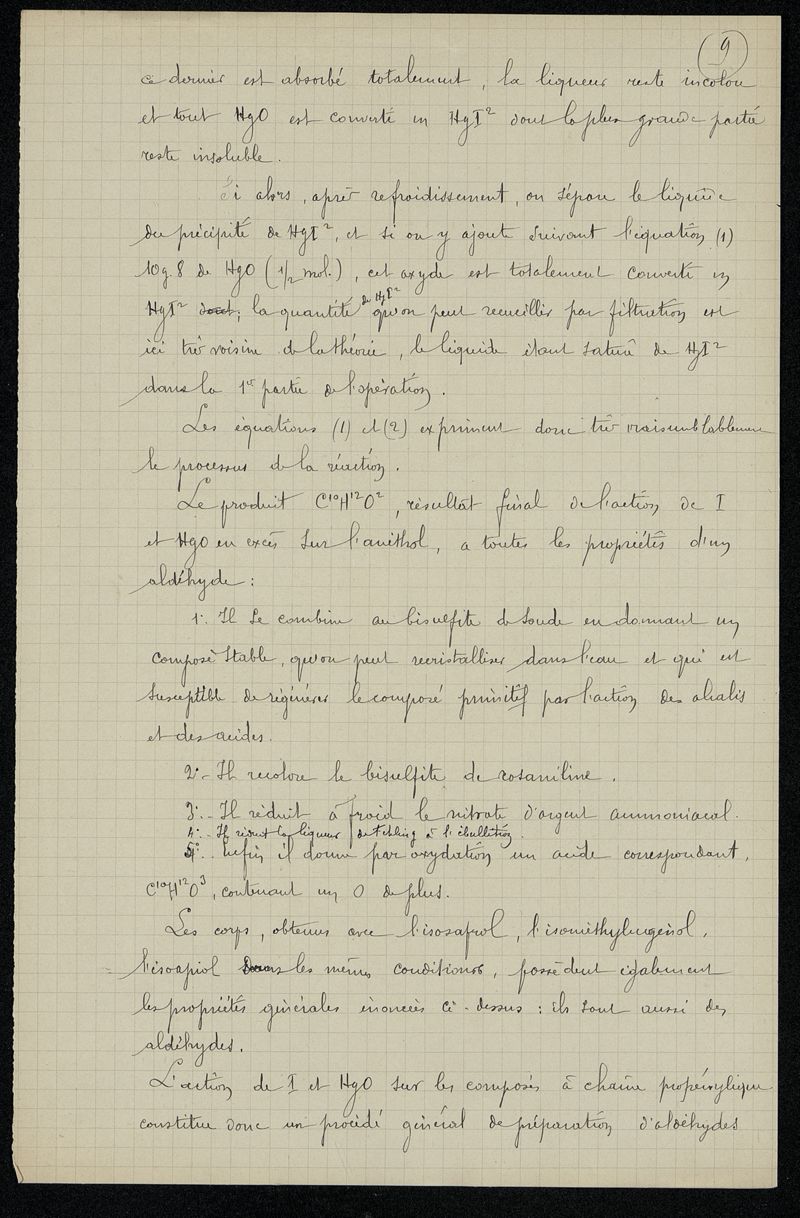 9
ce dernier est absorbé totalement, la liqueur reste incolore
et tout HgO est converti en HgI² dont la plus grande partie
reste insoluble.
Si alors, après refroidissement, on sépare le liquide
du précipité de HgI², et si on y ajoute suivant l'équation (1)
10g.8 de HgO (1/2 mol.), cet oxyde est totalement converti en
HgI² dont; la quantité de HgI² qu'on peut recueillir par filtration est
ici très voisine de la théorie, le liquide étant saturé de HgI²
dans la 1re partie de l'opération.
Les équations (1) et (2) expriment donc très vraisemblablement
le processus de la réaction.
Le produit C¹⁰H¹²O², résultat final de l'action de I
et HgO en excès sur l'anéthol, a toutes les propriétés d'un
aldéhyde :
1º. Il se combine au bisulfite de soude en donnant un
composé stable, qu'on peut recristalliser dans l'eau et qui est
susceptible de régénérer le composé primitif par l'action des alcalis
et des acides.
2º.- Il recolore le bisulfite de rosaniline.
3º.- Il réduit à froid le nitrate d'argent ammoniacal.
4º.- Il réduit la liqueur de Fehling à l'ébullition.
5º.. Enfin il donne par oxydation un acide correspondant,
C¹⁰H¹²O³, contenant un O de plus.
Les corps, obtenus avec l'isosafrol, l'isométhyleugénol,
l'isoapiol dans les mêmes conditions, possèdent également
les propriétés générales énoncées ci-dessus : ils sont aussi des
aldéhydes.
L'action de I et HgO sur les composés à chaîne propénylique
constitue donc un procédé général de préparation d'aldéhydes